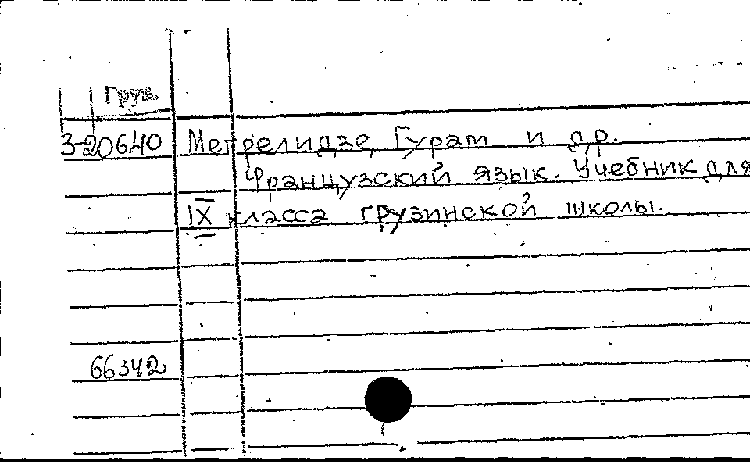 Груз.
3-20640 Мегрелидзе, Гурам и др.
Французский язык. Учебник для
IX класса грузинской школы.
66342